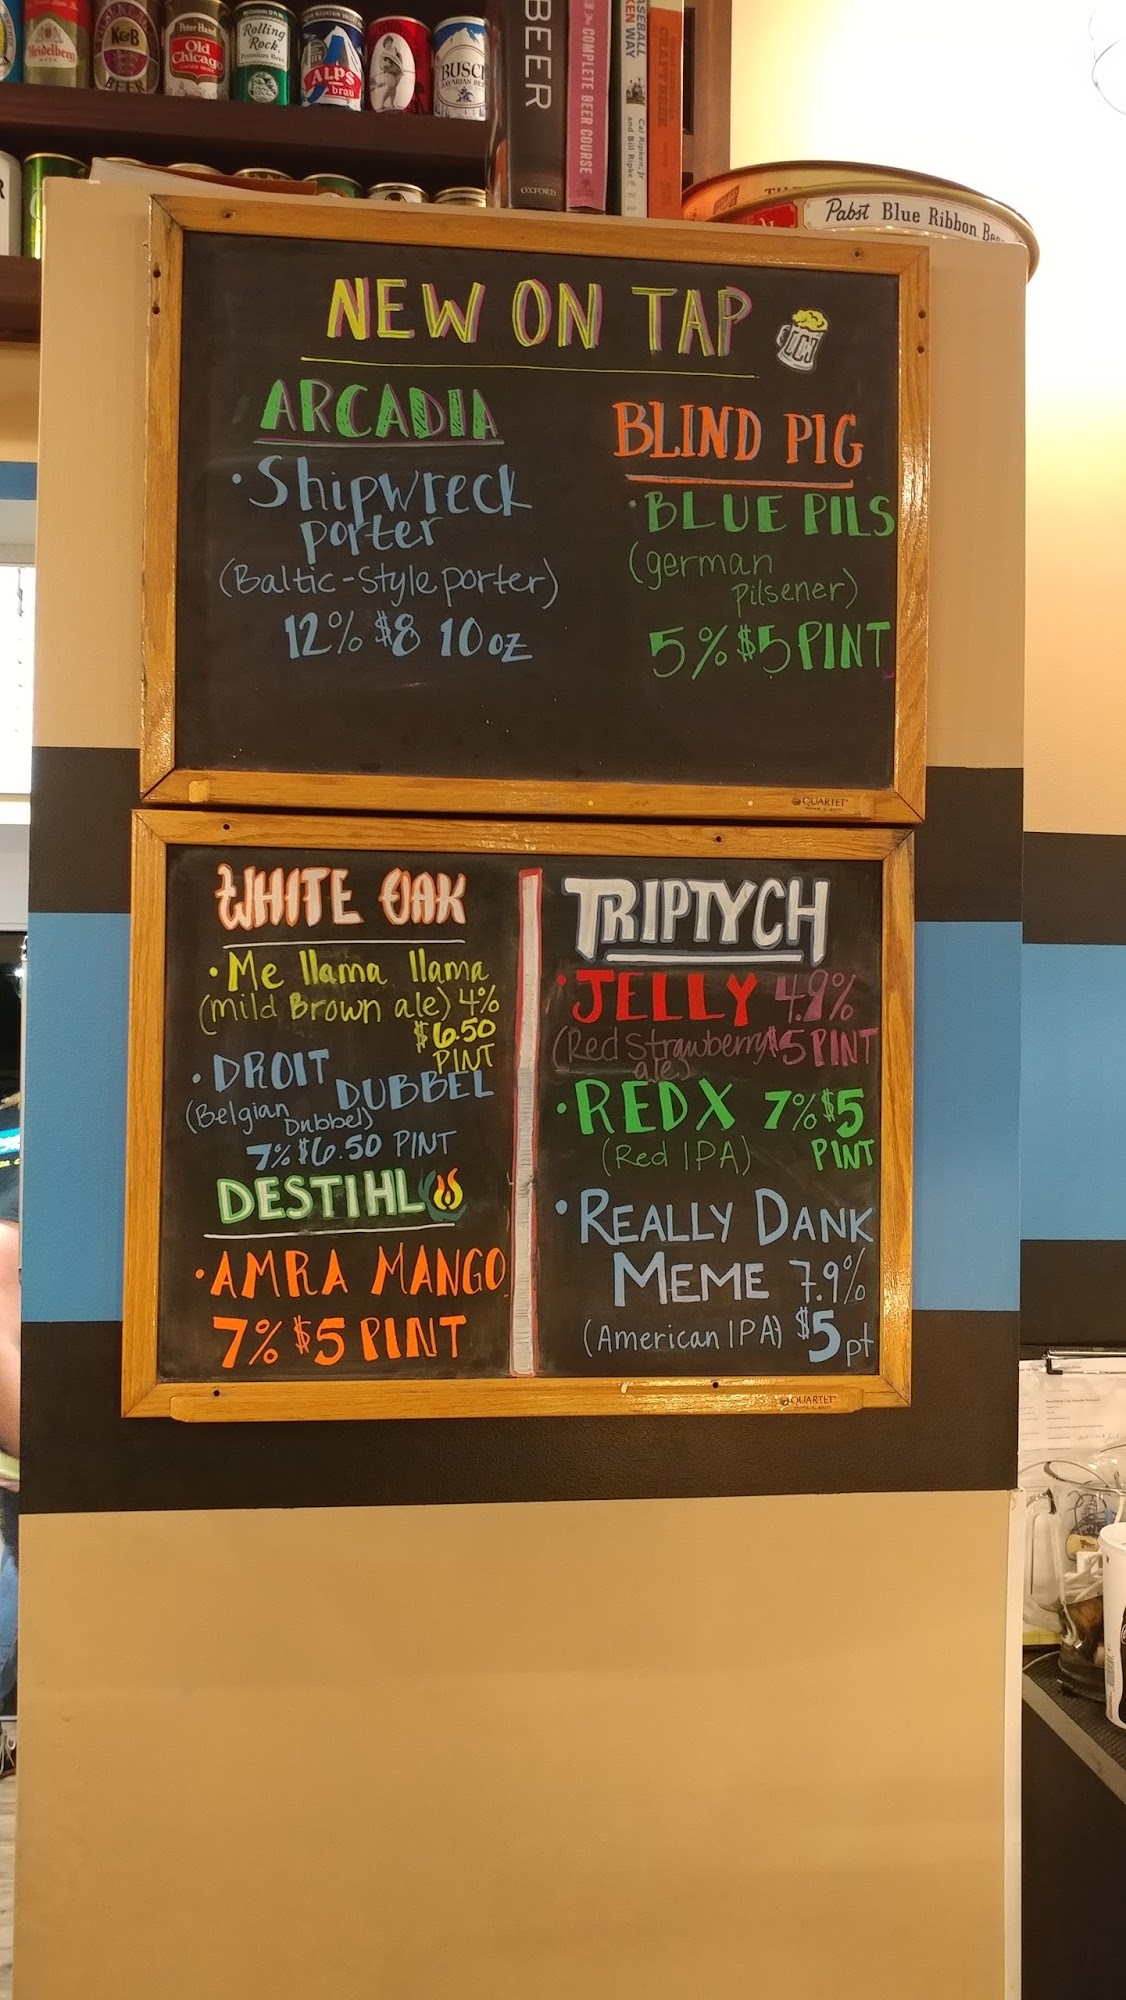 Heidelberg
K&B
BEER
Peter Hand
Old
Chicago
Rolling
Rock
Premium Beer
ALPS
brau
BUSCH
BAVARIAN BEER
BEER
OXFORD
The COMPLETE BEER COURSE
BASEBALL
Cal Ripken, Jr.
and Bill Ripke
Pabst Blue Ribbon Bee
NEW ON TAP
ARCADIA
• Shipwreck
porter
(Baltic-Style porter)
12% $8 10oz
BLIND PIG
• BLUE PILS
(german
pilsener)
5% $5 PINT
QUARTET
WHITE OAK
• Me llama llama
(mild Brown ale) 4%
$6.50
PINT
• DROIT
DUBBEL
(Belgian
Dubbel)
7% $6.50 PINT
DESTIHL
• AMRA MANGO
7% $5 PINT
TRIPTYCH
• JELLY 4.9%
(Red Strawberry $5 PINT
ale)
• REDX 7% $5
(Red IPA) PINT
• REALLY DANK
MEME 7.9%
(American IPA) $5 pt
QUARTET